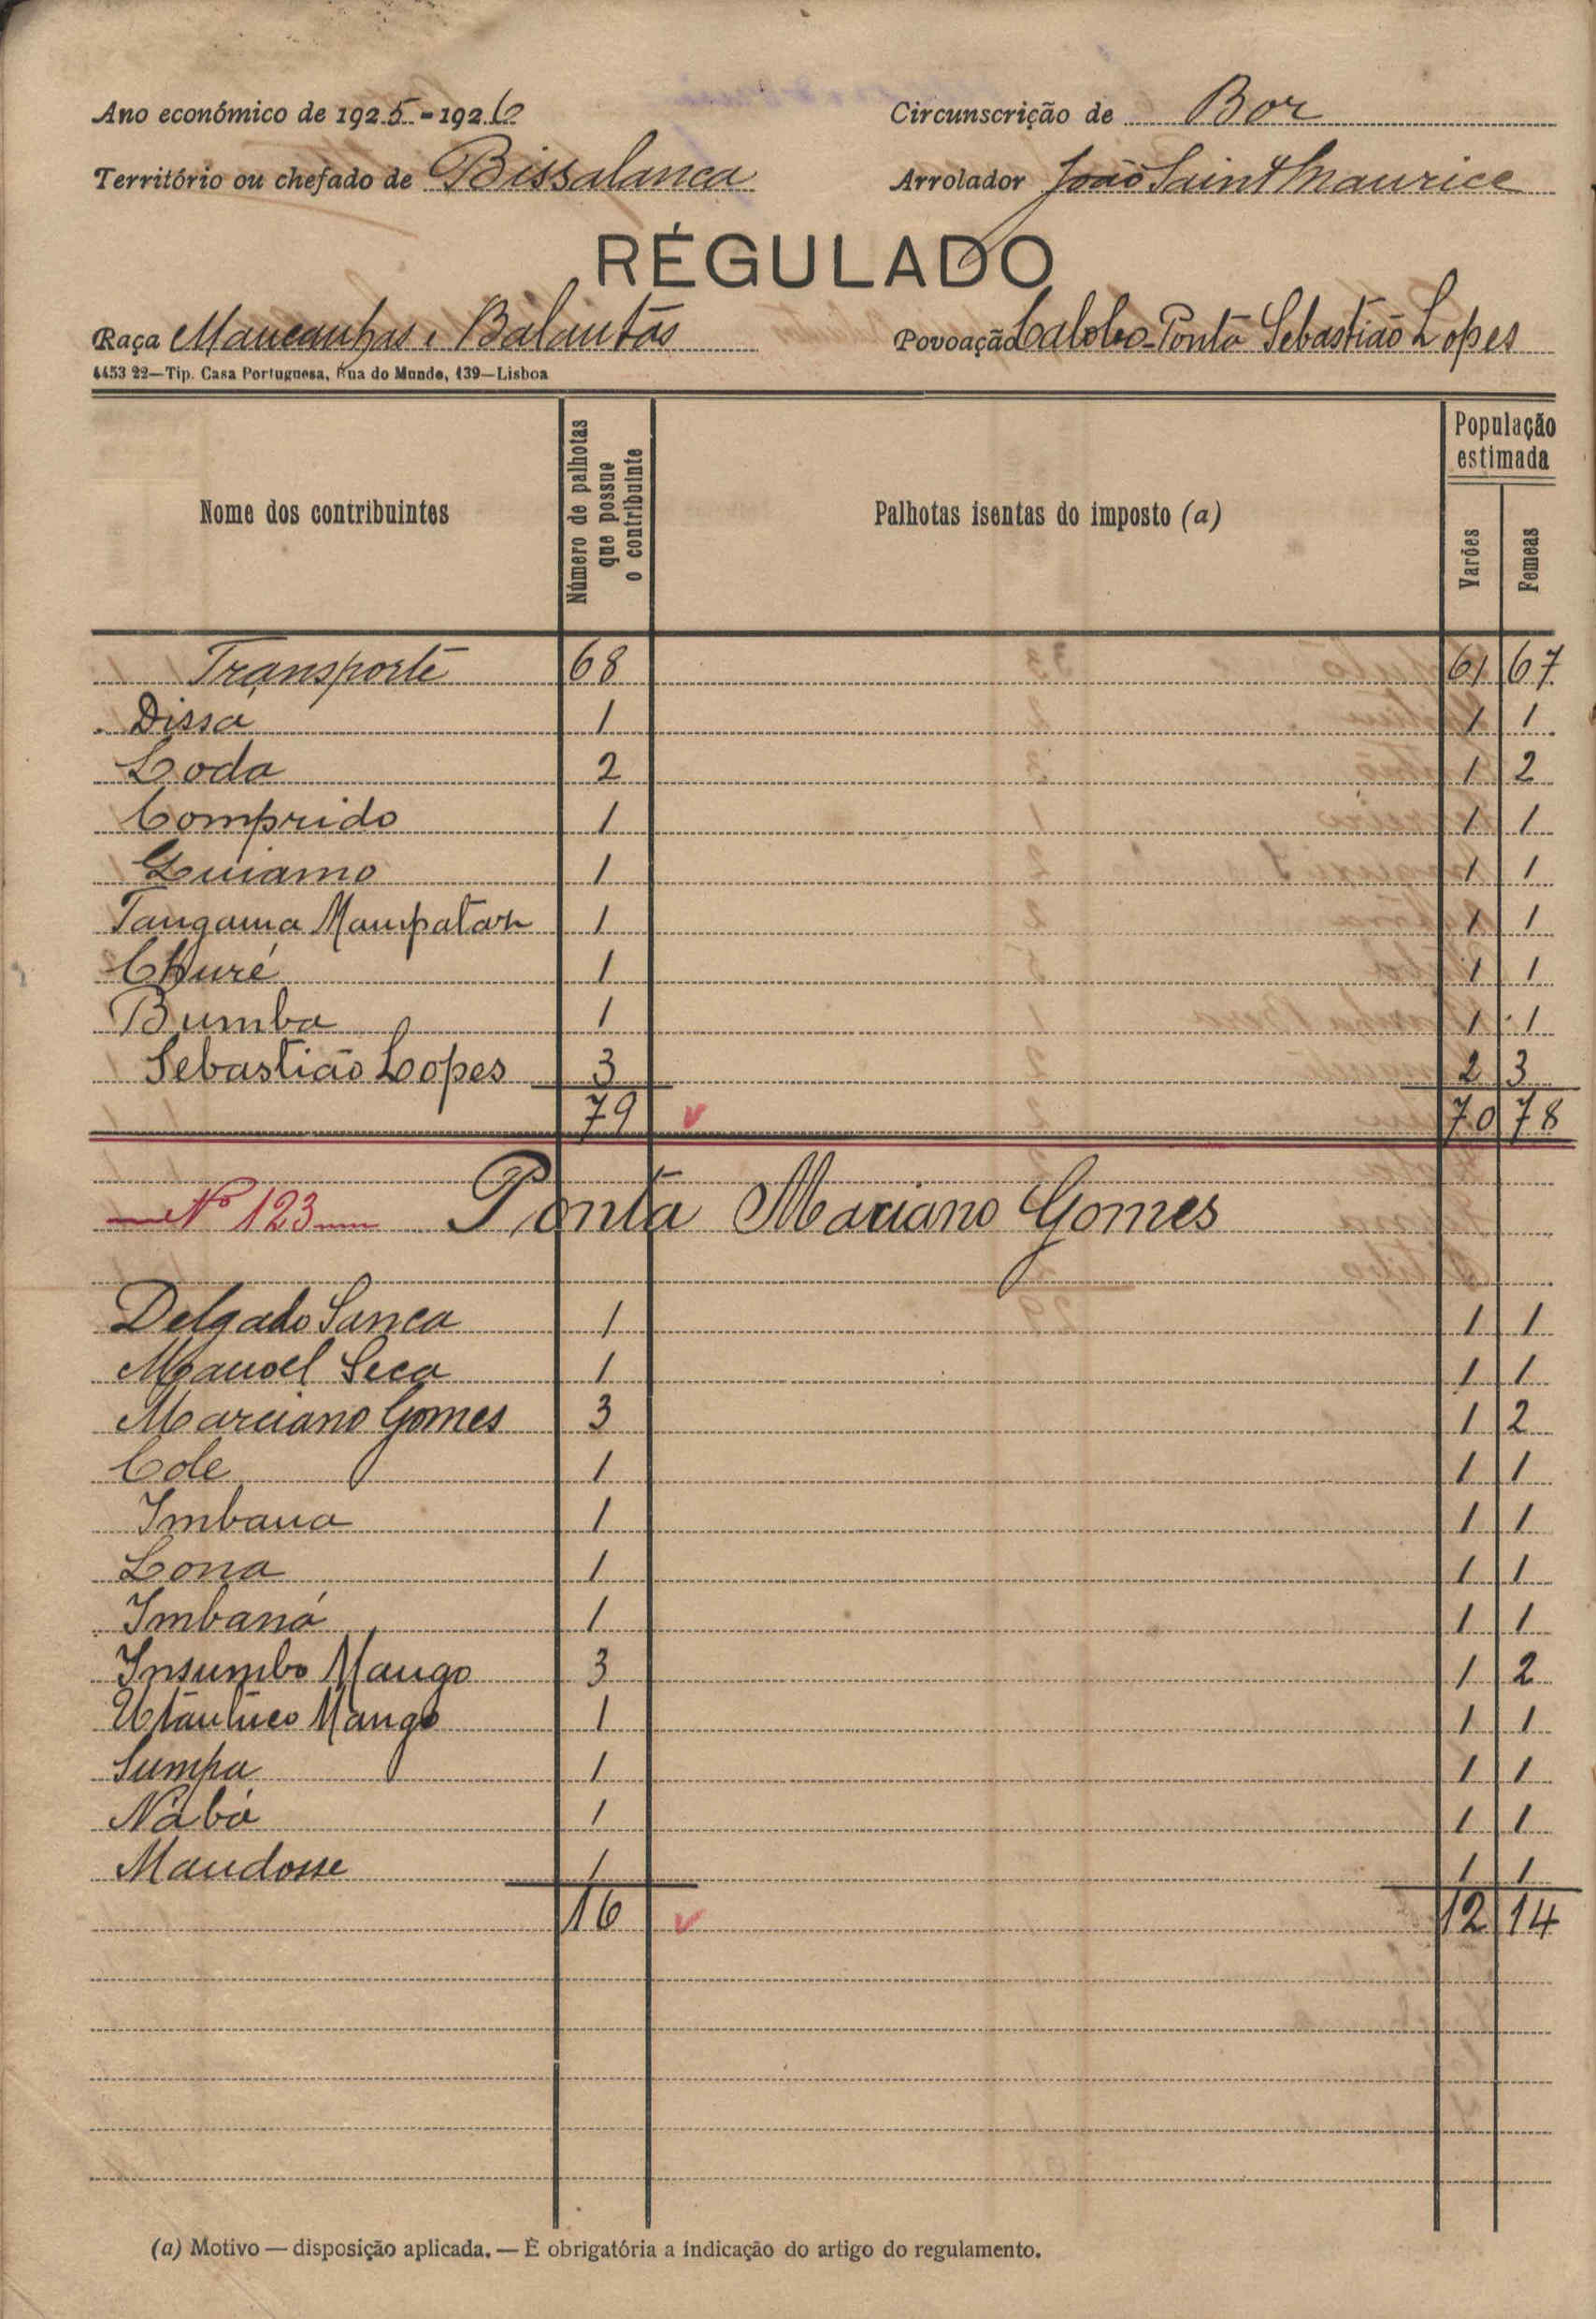 Ano económico de 1925-1926 Circunscrição de Bor
Território ou chefado de Bissalanca Arrolador João Saint Maurice
RÉGULADO
Raça Mancanhas e Balantas Povoação Calolco-Ponta Sebastião Lopes
4453 22—Tip. Casa Portuguesa, Rua do Mundo, 139—Lisboa
Nome dos contribuintes Número de palhotas que possue o contribuinte Palhotas isentas do imposto (a) População estimada Varões Femeas
Transporte 68 61 67
Dissa 1 1 1
Loda 2 1 2
Comprido 1 1 1
Quiamo 1 1 1
Tangama Mampatar 1 1 1
Churé 1 1 1
Bumba 1 1 1
Sebastião Lopes 3 2 3
79 70 78
Nº 123 Ponta Marciano Gomes
Delgado Sanca 1 1 1
Manoel Seca 1 1 1
Marciano Gomes 3 1 2
Cole 1 1 1
Imbaua 1 1 1
Lona 1 1 1
Imbaná 1 1 1
Insumbo Mango 3 1 2
Mango 1 1 1
Sumpa 1 1 1
Nabó 1 1 1
Maudosse 1 1 1
16 12 14
(a) Motivo — disposição aplicada. — É obrigatória a indicação do artigo do regulamento.